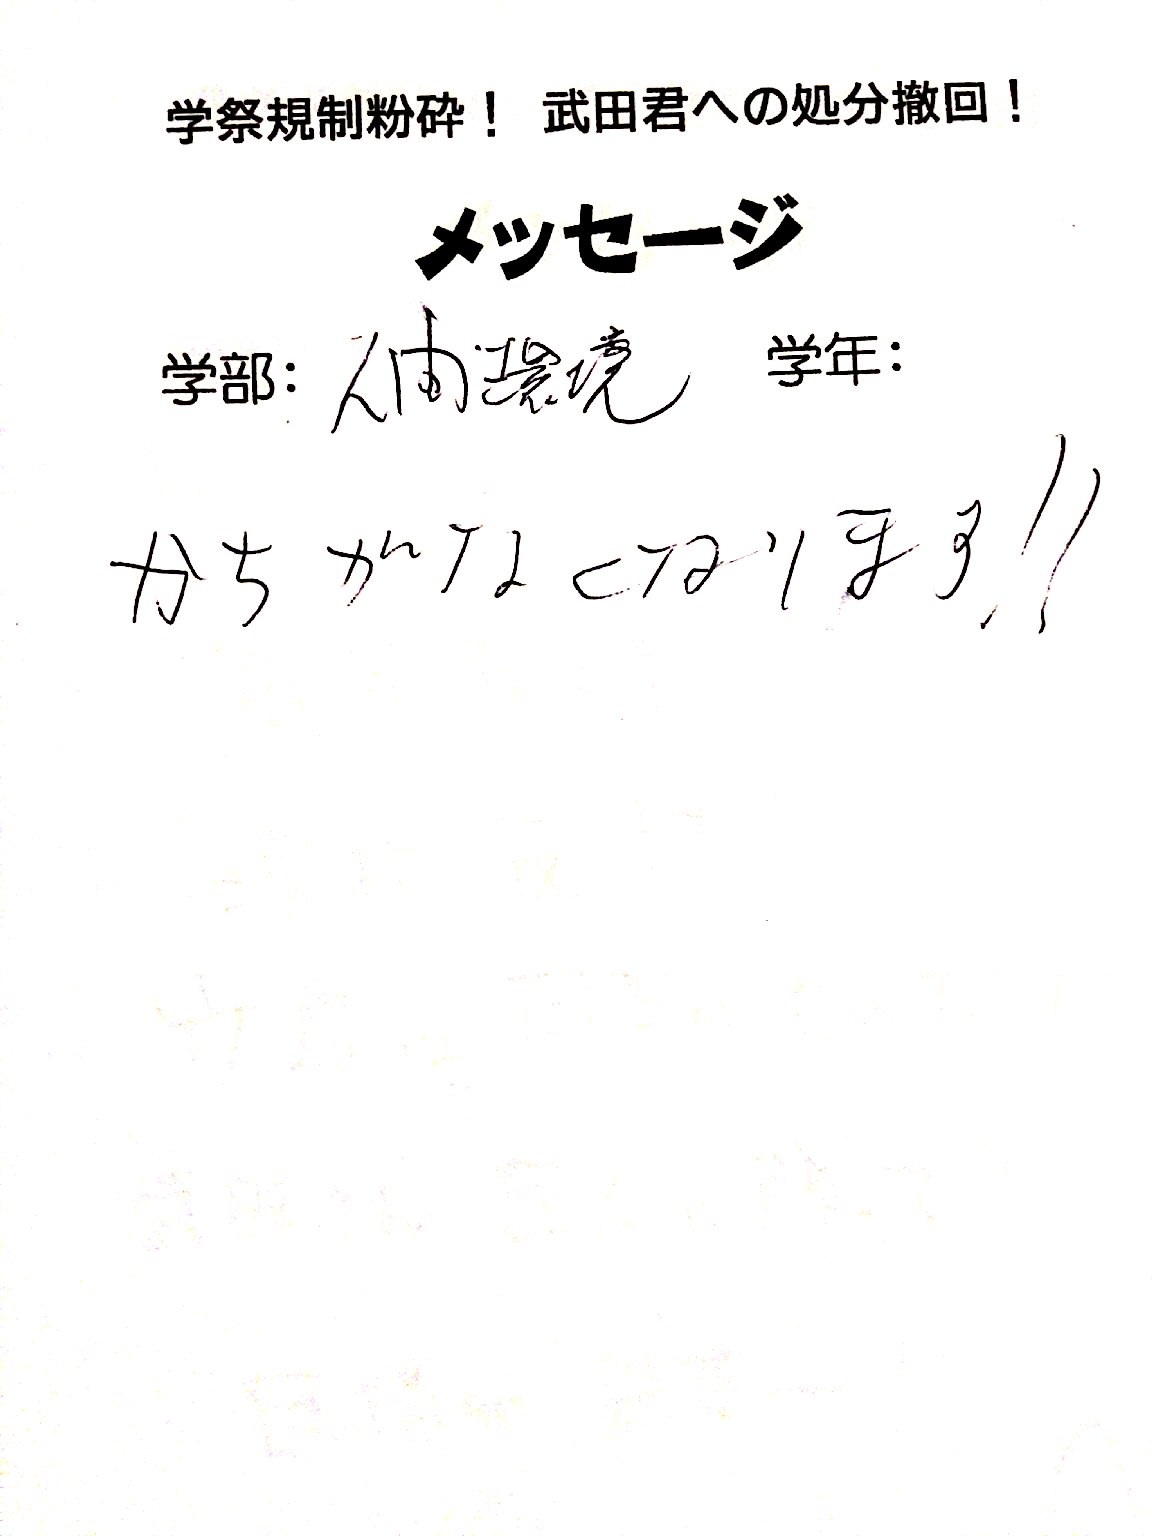 学祭規制粉砕！ 武田君への処分撤回！
メッセージ
学部： 人間環境 学年：
かちがなくなります!!